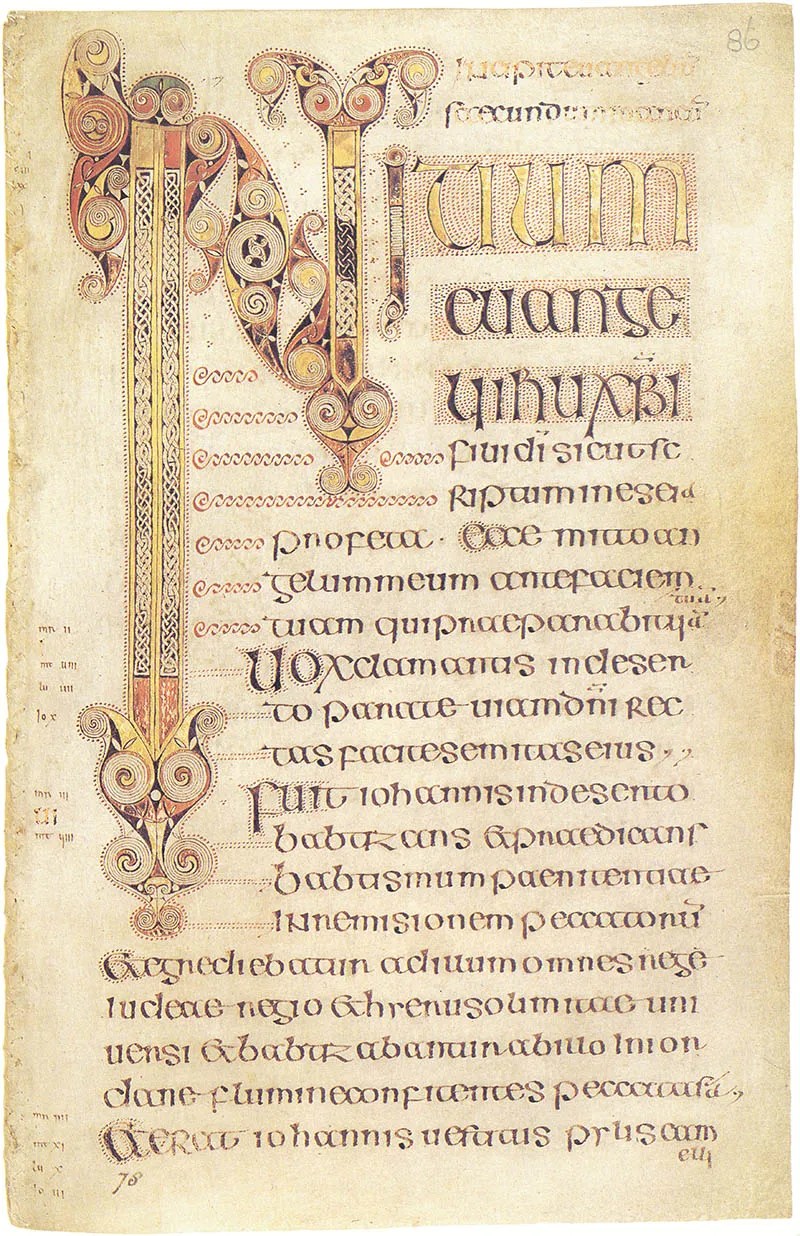 86
secundum marcum
INITIUM
euange
lii ihu xpi
filii di sicut sc
riptum in eseia
profeta · Ecce mitto an
gelum meum ante faciem
tuam qui praeparabit uiā
tuā
UOX clamantis in deser
to parate uiam dn̄i rec
tas facite semitas eius
Fuit iohannis in deserto
babtizans & praedicans
babtismum paenitentiae
in remisionem peccatorū
& egrediebatur ad illum omnes rege
iudeae regio & hierusolimitae uni
uersi & babtizabantur ab illo in ior
dane flumine confitentes peccata sā
& ERAT iohannis uestitus pylis cam
elli
78